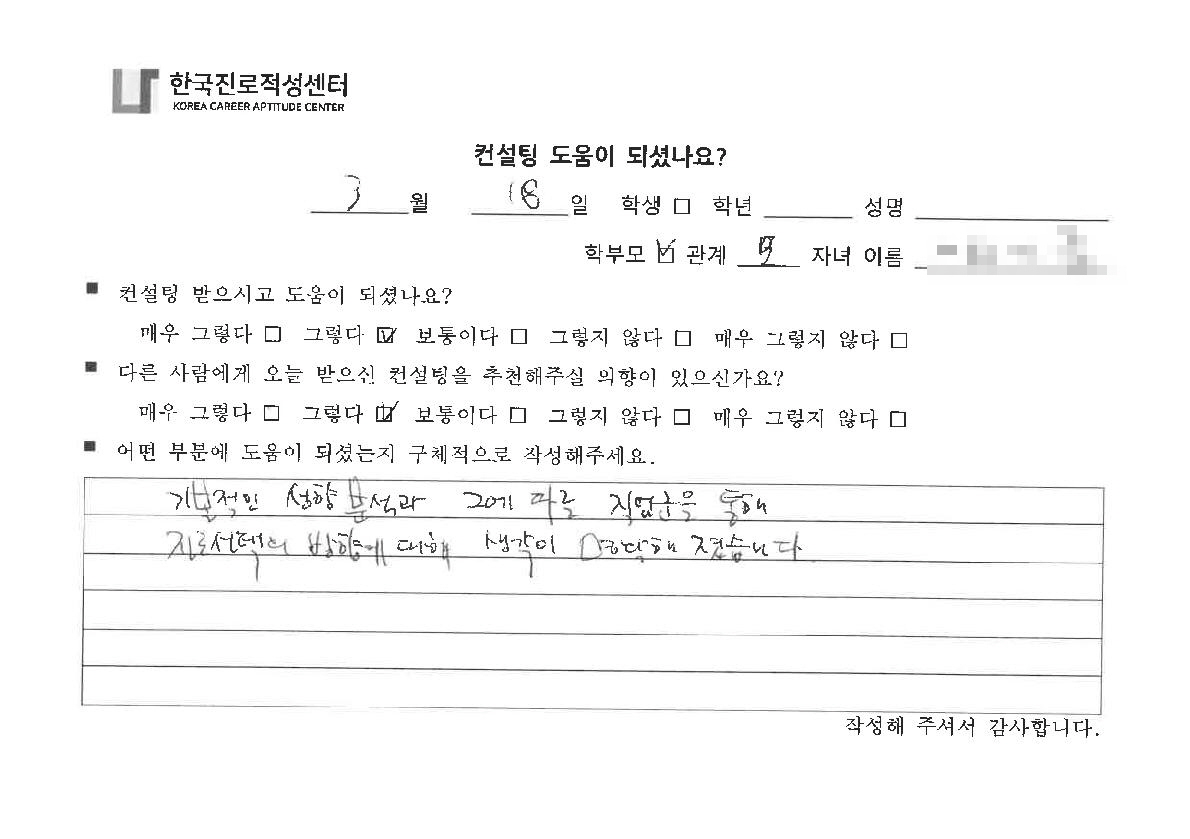 한국진로적성센터
KOREA CAREER APTITUDE CENTER
컨설팅 도움이 되셨나요?
3 월 18 일 학생 □ 학년 성명
학부모 ☑ 관계 모 자녀 이름
■ 컨설팅 받으시고 도움이 되셨나요?
매우 그렇다 □ 그렇다 ☑ 보통이다 □ 그렇지 않다 □ 매우 그렇지 않다 □
■ 다른 사람에게 오늘 받으신 컨설팅을 추천해주실 의향이 있으신가요?
매우 그렇다 □ 그렇다 ☑ 보통이다 □ 그렇지 않다 □ 매우 그렇지 않다 □
■ 어떤 부분에 도움이 되셨는지 구체적으로 작성해주세요.
기본적인 성향분석과 그에 따른 직업군을 통해
진로선택의 방향에 대해 생각이 명확해 졌습니다.
작성해 주셔서 감사합니다.